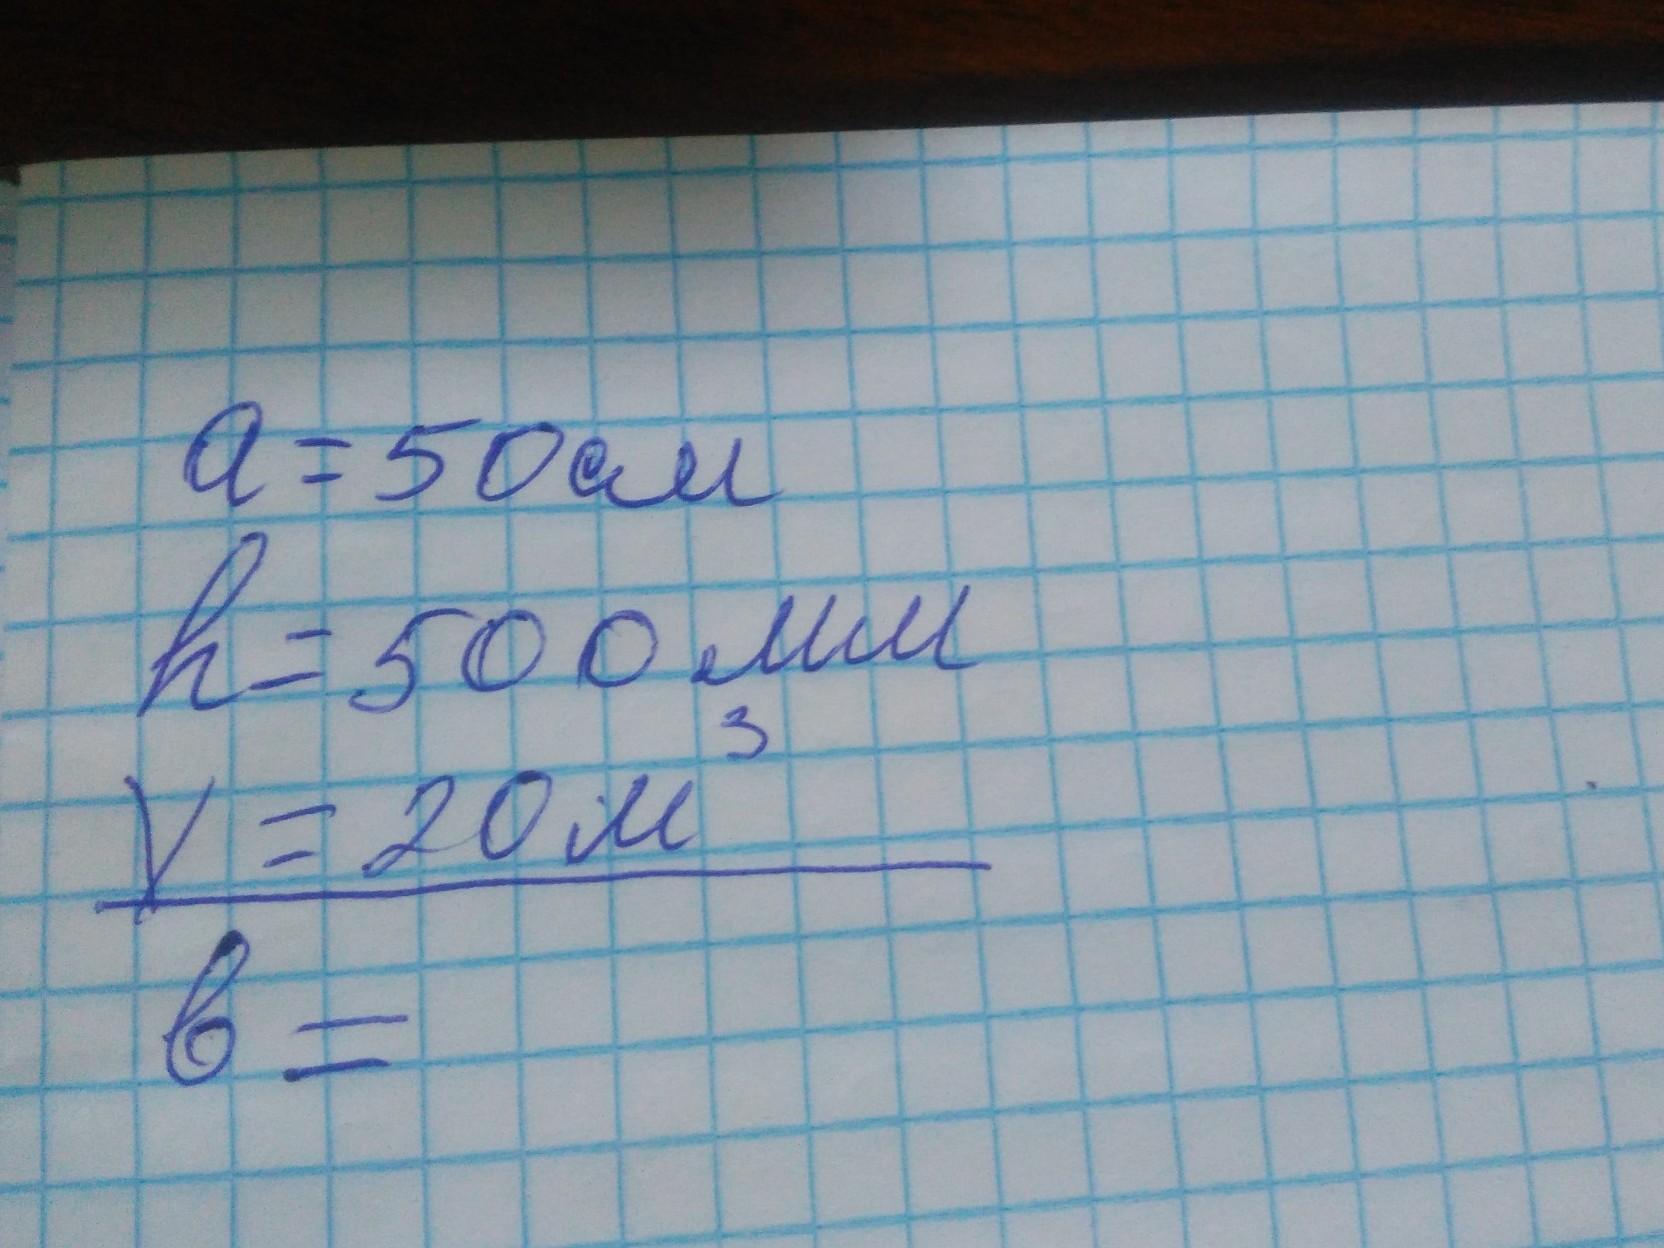 a = 50 см
h = 500 мм
V = 20 м³
в =